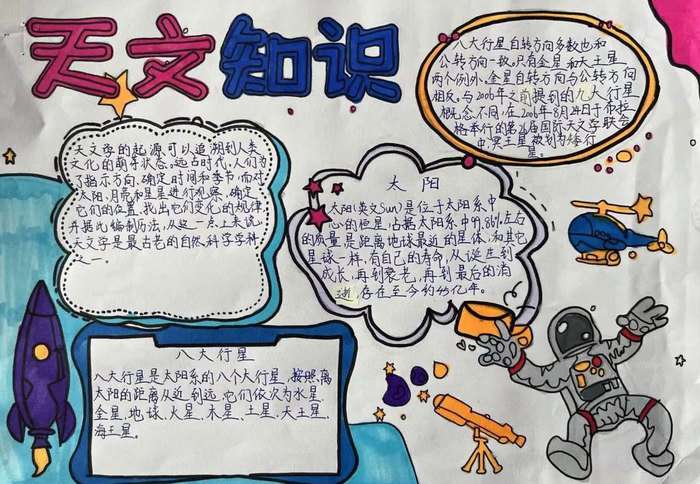 天文知识
天文学的起源可以追溯到人类
文化的萌芽状态。远古时代,人们为
了指示方向、确定时间和季节,而对
太阳、月亮和星星进行观察,确定
它们的位置、找出它们变化的规律
并据此编制历法,从这一点上来说,
天文学是最古老的自然科学学科
之一.
八大行星自转方向多数也和
公转方向一致。只有金星和天王星
两个例外、金星自转方向与公转方向
相反。与2006年之前提到的九大行星
概念不同.在2006年8月24日于布拉
格举行的第26届国际天文学联会
中冥王星被划为矮行
星。
太 阳
太阳(英文Sun)是位于太阳系中
心的恒星,占据太阳系中99.86%左右
的质量,是距离地球最近的星体,和其它
星球一样,有自己的寿命,从诞生到
成长,再到衰老,再到最后的消
逝,存在至今约45亿年。
八大行星
八大行星是太阳系的八个大行星,按照离
太阳的距离从近到远,它们依次为水星、
金星、地球、火星、木星、土星、天王星、
海王星。